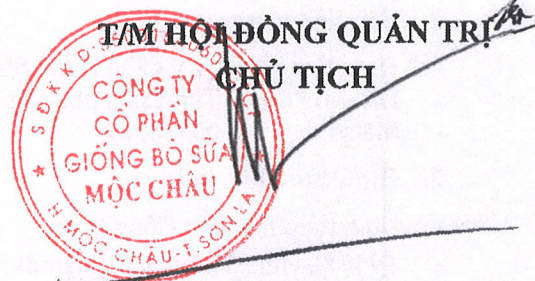 T/M HỘI ĐỒNG QUẢN TRỊ
CHỦ TỊCH
CÔNG TY
CỔ PHẦN
GIỐNG BÒ SỮA
MỘC CHÂU
H. MỘC CHÂU - T. SƠN LA